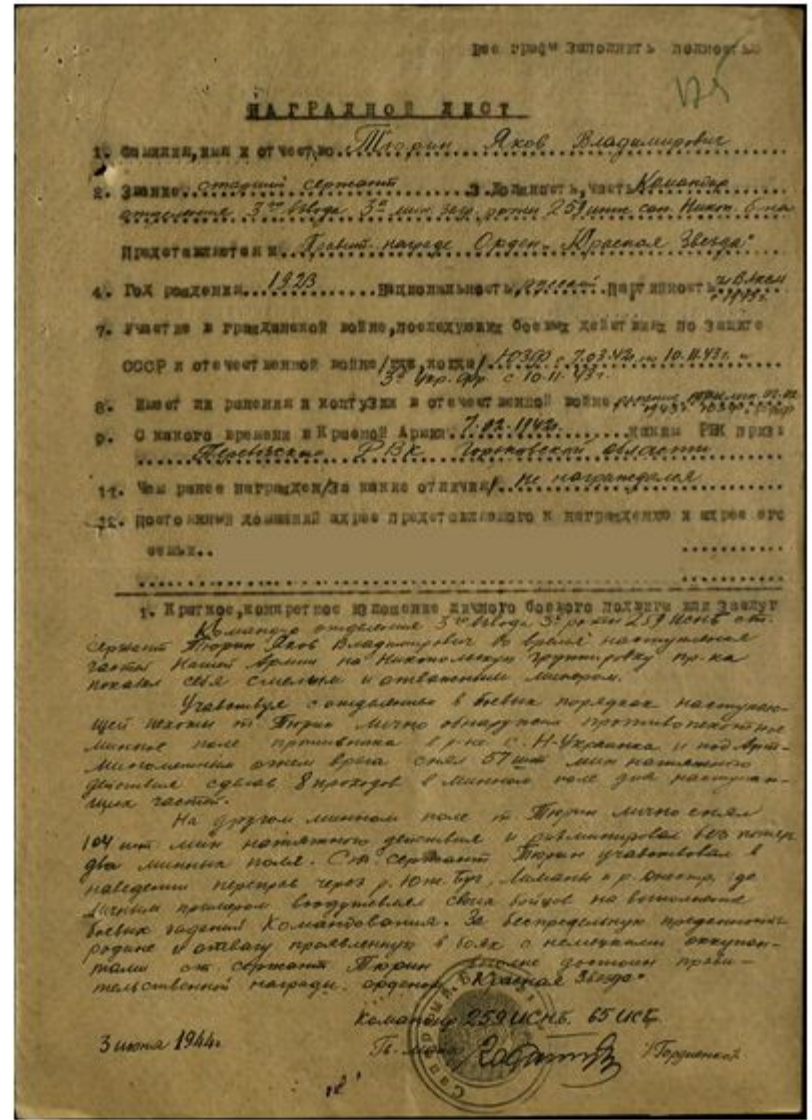 Все графы заполнить полностью
125
НАГРАДНОЙ ЛИСТ
1. Фамилия, имя и отчество Тюрин Яков Владимирович
2. Звание старший сержант 3. Должность, часть Командир
отделения 3го взвода 3й мин. заг. роты 259 инж. сап. Никоп. б-на
Представляется к Правит. награде Орден. "Красная Звезда"
4. Год рождения 1923 Национальность русский Партийность чл ВЛКСМ
7. Участие в гражданской войне, последующих боевых действиях по защите
СССР и отечественной войне /где, когда/ ЮЗФ с 7.03.42 по 10.11.43г. и
3й Укр. фр. с 10.11.43г.
8. Имеет ли ранения и контузии в отечественной войне
9. С какого времени в Красной Армии 7.02.1942г. каким РВК призван
РВК Горьковской области
11. Чем ранее награжден /за какие отличия/ не награждался
12. Постоянный домашний адрес представляемого к награждению и адрес его
семьи..
1. Краткое, конкретное изложение личного боевого подвига или заслуг
Командир отделения 3го взвода 3й роты 259 ИСНБ ст.
сержант Тюрин Яков Владимирович во время наступления
частей Нашей Армии на Никопольскую группировку пр-ка
показал себя смелым и отважным минером.
Учавствуя с отделением в боевых порядках наступаю-
щей пехоты т. Тюрин лично обнаружил противопехотное
минное поле противника в р-не с. Н-Украинка и под Арт-
Минометным огнем врага снял 57 шт мин натяжного
действия сделав 8 проходов в минном поле для наступаю-
щих частей.
На другом минном поле т. Тюрин лично снял
104 шт мин натяжного действия и разминировал без потерь
два минных поля. Ст. сержант Тюрин учавствовал в
наведении переправ через р. Юж. Буг, Лиманы и р. Днестр, где
Личным примером воодушевлял своих бойцов на выполнение
боевых заданий Командования. За беспредельную преданность
родине и отвагу проявленную в боях с немецкими оккупан-
тами ст. сержант Тюрин вполне достоин прави-
тельственной награды орденом "Красная Звезда"
Командир 259 ИСНБ. 65 ИСБ
3 июня 1944г. Гв. /Гордиенко/